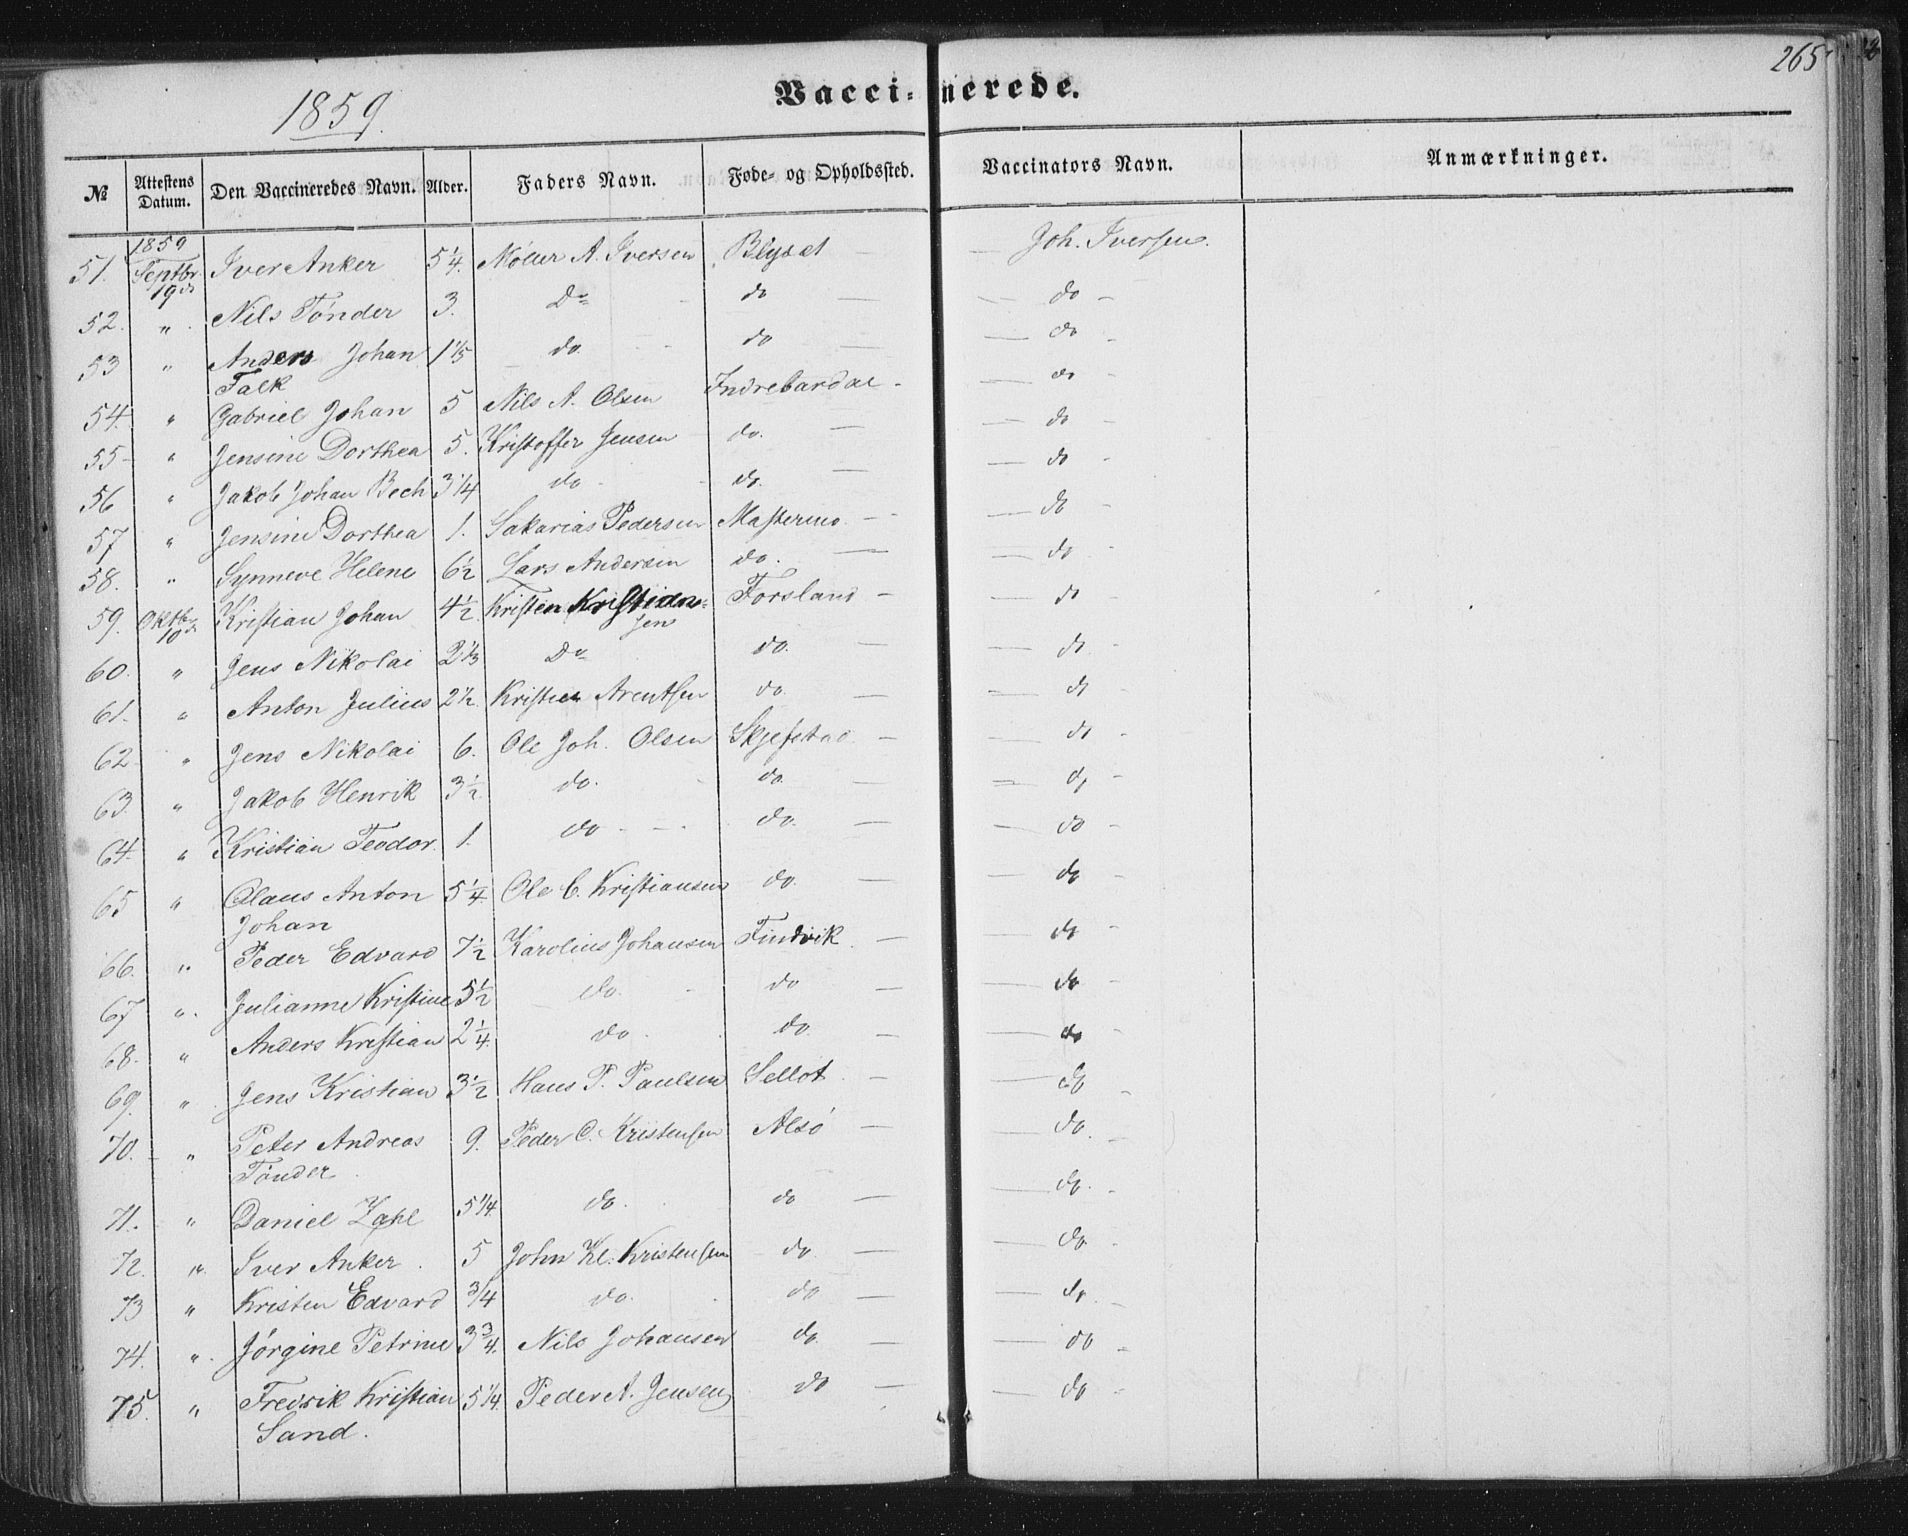 265
1859.
Vacci=nerede.
№ Attestens Datum. Den Vaccineredes Navn. Alder. Faders Navn. Føde- og Opholdssted. Vaccinators Navn. Anmærkninger.
1859
51. Septbr. 19de Iver Anker 5¼. Møller A. Iversen — Joh. Iversen.
52. " Nils Tønder 3. Do do — do —
53 " Anders Johan 1⅕ do. do — do —
Falk
54. " Gabriel Johan 5 Nils A. Olsen Indrebardal — do —
55 " Jensine Dorthea 5. Kristoffer Jensen do. — do —
56 " Jakob Johan Bech 3¼ do do. — do —
57 " Jensine Dorthea 1. Sakarias Pedersen — do —
58. " Synneve Helene 6½ Lars Andersen do. — do —
59. Oktbr 10de Kristian Johan 4½ Kristen Kristian= Forsland — do —
sen
60. " Jens Nikolai 2⅓ Do do. — do —
61. " Anton Julius 2½. Kristian Arentsen do. — do —
62 " Jens Nikolai 6. Ole Joh. Olsen Skjefstad — do —
63. " Jakob Henrik 3½. do. do. — do —
64. " Kristian Teodor. 1. do do. — do —
65 " Claus Anton 5¼. Ole C. Kristiansen do. — do —
Johan
66. " Peder Edvard 7½ Karolius Johansen Findvik. — do —
67 " Julianne Kristine 5½ do. do — do —
68. " Anders Kristian 2¼. do. do. — do —
69. " Jens Kristian 3½ Hans P. Paulsen Sellot — do —
70. " Peter Andreas 9. Peder C. Kristensen Alsø — do. —
Tønder
71. " Daniel Zahl 5¼. do. do — do. —
72. " Iver Anker. 5 John Kl. Kristensen do — do.
73 " Kristen Edvard ¾ do. do — do. —
74. " Jørgine Petrine 3¾. Nils Johansen do. — do —
75. " Fredrik Kristian 5¼. Peder A. Jensen do — do —
Sand.